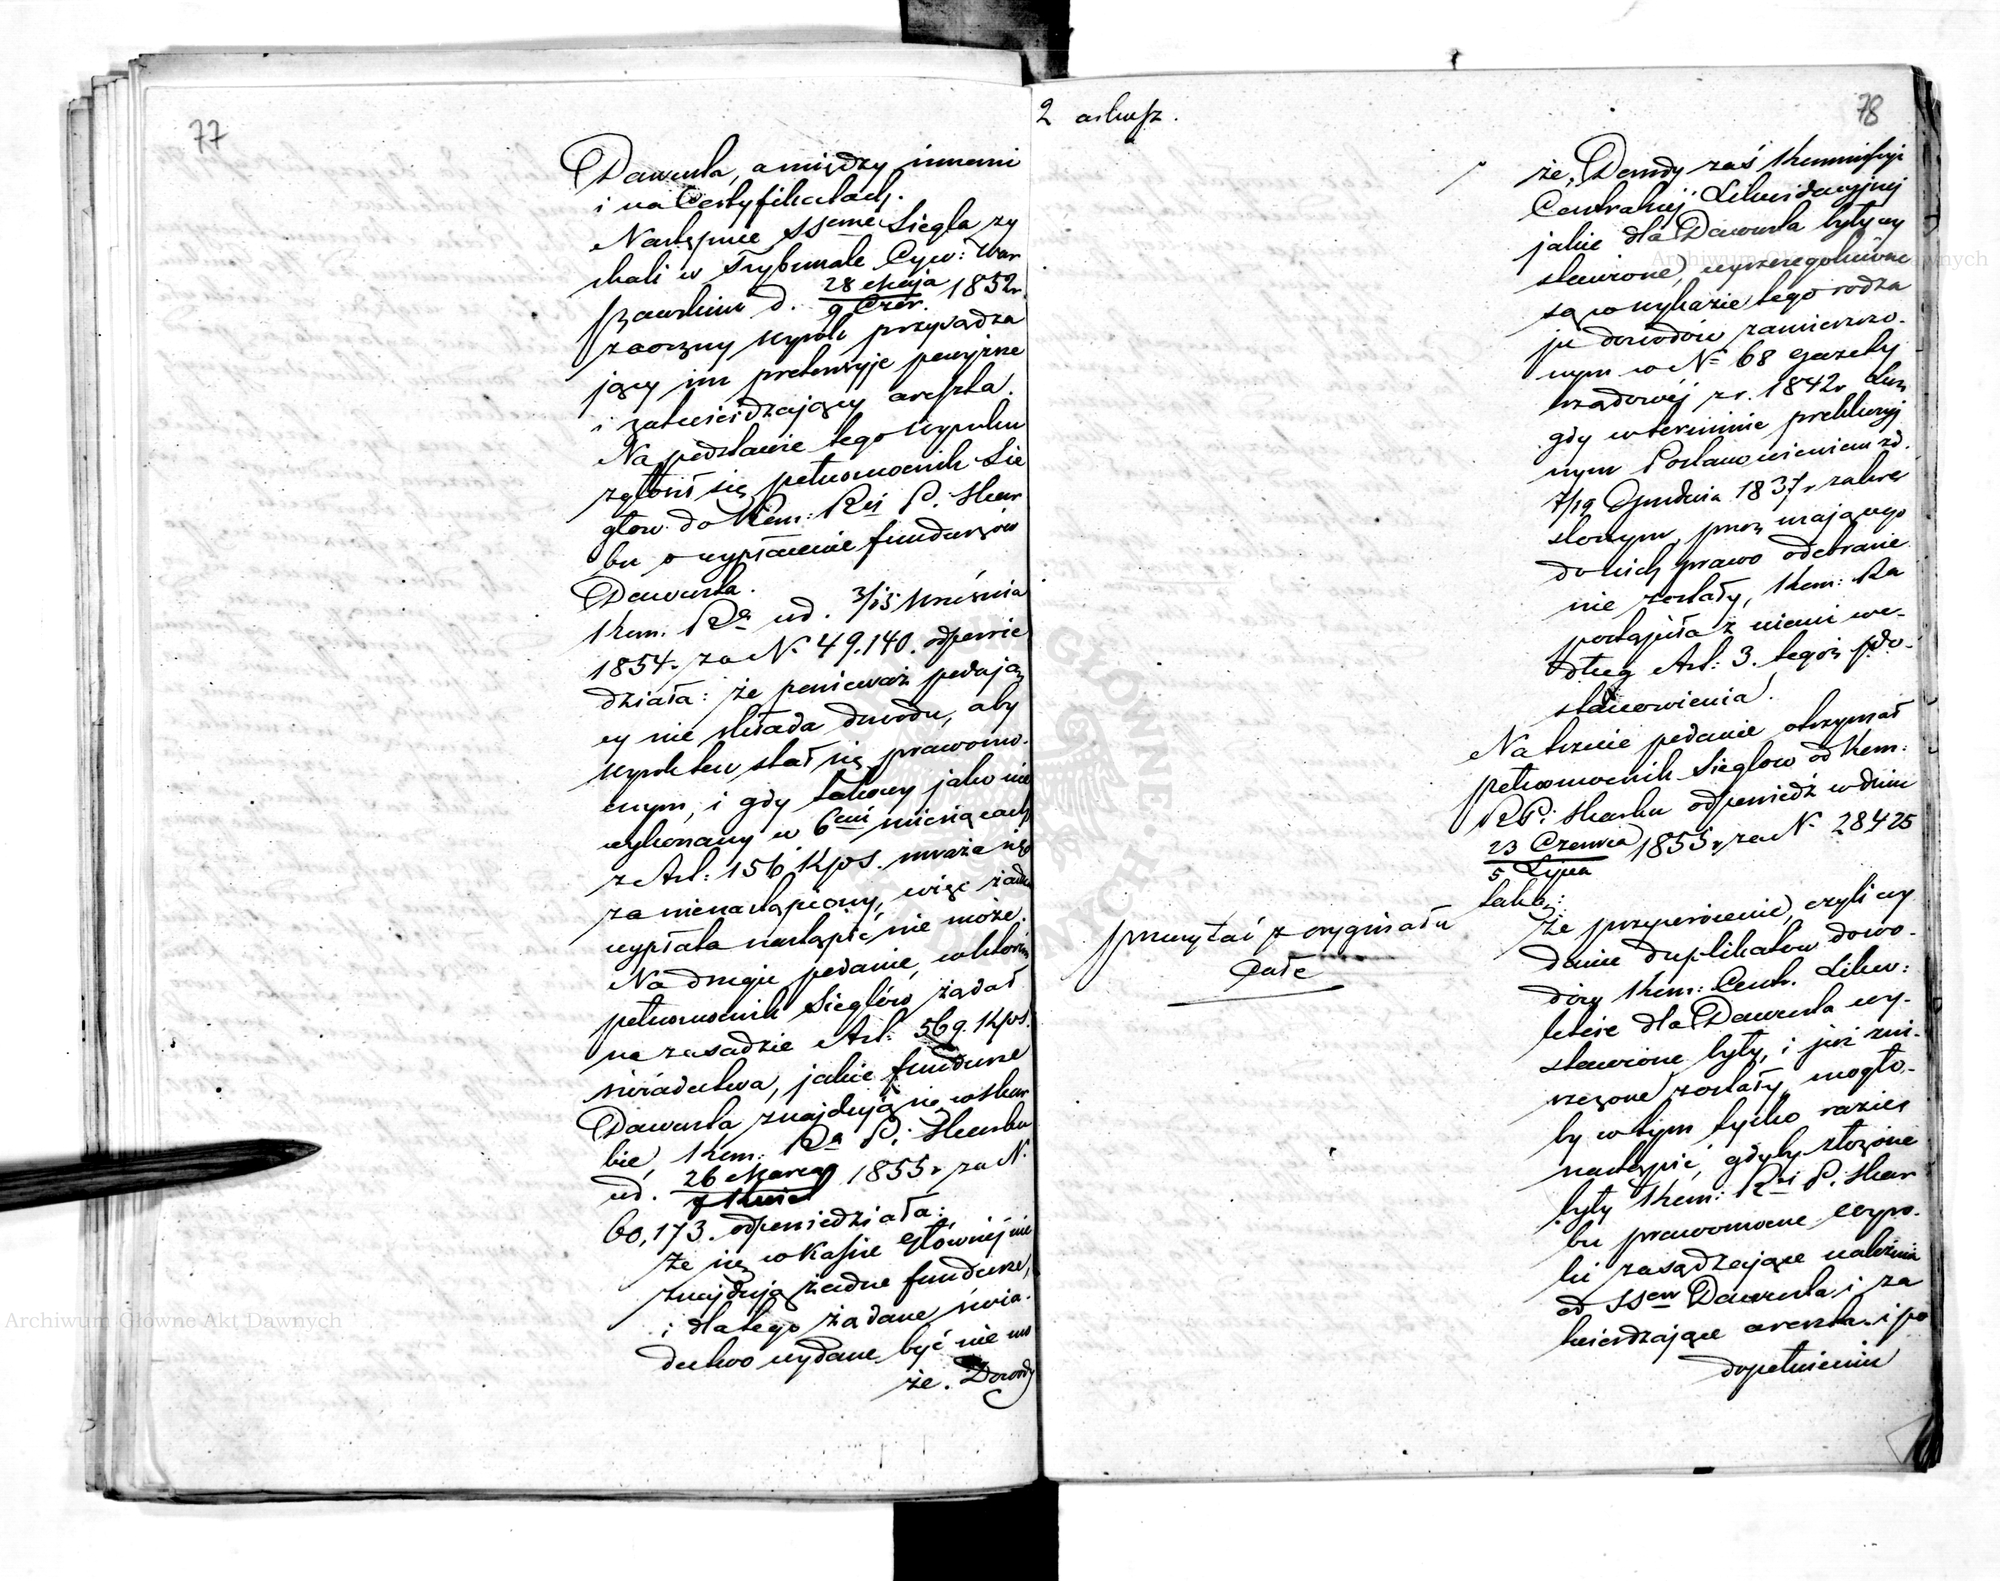 77
Dawensta, a między innemi
i na Certyfikatach.
Następnie SSrowie Siegla zy
skali w Trybunale Cyw: War
szawskim d. 28 Maja / 9 Czer. 1852 r.
zaoczny wyrok przysądza
jący im pretensyje powyższe
i zatwierdzający areszta.
Na podstawie tego wyroku
zgłosił się pełnomocnik Sie
głow do Kom: Rei P. Skar
bu o wypłacenie funduszów
Dawensta.
Kom. Ra ud. 3/15 Września
1854 r. za N. 49.140. odpowie
działa: że ponieważ podają
cy nie składa dowodu, aby
wyrok ten stał się prawomo.
cnym, i gdy takowy jako nie
wykonany w 6ciu miesiącach
z Art: 156 Kps. uważa się
za nienastąpiony, więc żadna
wypłata nastąpić nie może.
Na drugie podanie, w którém
pełnomocnik Sieglów żądał
na zasadzie Art: 569. Kps.
świadectwa, jakie fundusze
Dawensta znajdują się w Skar
bie, Kom: Ra P. Skarbu
ud. 26 Marca / 7 Kwiet 1855 r. za N.
60,173. odpowiedziała:
Że się w Kassie Głównej nie
znajdują żadne fundusze,
i dlatego żądane świa.
dectwo wydane być nie mo
że. Dowody
2 arkusz.
78
że, Dowody zaś Kommissyi
Centralnej Likwidacyjnej
jakie dla Dawensta były wy
stawione, wyszczególnione
są w wykazie tego rodza
ju dowodów zamieszczo.
nym w N= 68 Gazety
rządowéj z r. 1842. Lecz
gdy w terminie prekluzyj
nym Postanowieniem zd.
7/19 Grudnia 1837 r. zakre
slonym, przez mającego
do nich prawo odebrane
nie zostały, Kom: Ra
postąpiła z niemi we-
dług Art: 3. tegoż po-
stanowienia.
Na trzecie podanie otrzymał
pełnomocnik Sieglow od Kom:
R.P. Skarbu odpowiedź w dniu
23 Czerwca / 5 Lipca 1855 r. za N. 28425
taką:
Że przywrócenie, czyli wy
danie duplikatów dowo.
dów Kom: Centr. Likw:
które dla Dawensta wy-
stawione były, i już zni-
szczone zostały, mogło-
by w tym tylko razie
nastąpić, gdyby złożone
były Kom: Rei P. Skar
bu prawomocne wyro.
ki zasądzające należność
od SSow Dawensta i za
twierdzające areszta i po
dopełnieniu
przeczytać z oryginału
Całe